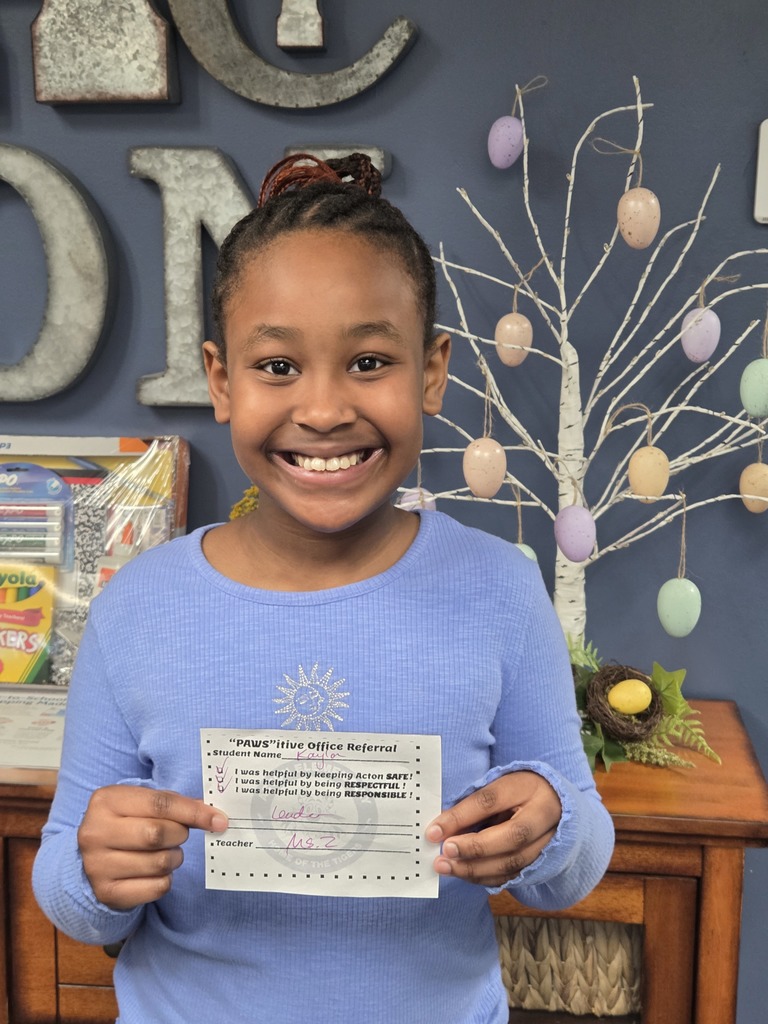 ON
Crayola
"PAWS"itive Office Referral
Student Name Kaylor
I was helpful by keeping Acton SAFE!
I was helpful by being RESPECTFUL!
I was helpful by being RESPONSIBLE!
Leader
Teacher Ms. Z
OF THE TIGER